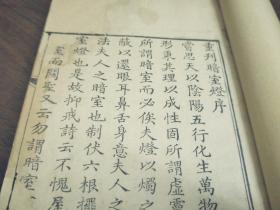 重刊暗室燈序
嘗思天以陰陽五行化生萬物
形秉其理以成性固所謂虛靈
所謂暗室而必俟夫燈以燭之
蔽以還眼耳鼻舌身意夫人之
法夫人之暗室也制伏六根擺
室燈也是故抑戒詩云不愧屋
室而關聖又云勿謂暗室